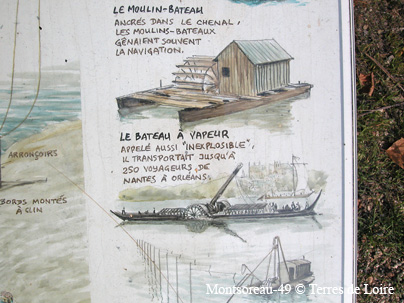 LE MOULIN-BATEAU
ANCRÉS DANS LE CHENAL,
LES MOULINS-BATEAUX
GÊNAIENT SOUVENT
LA NAVIGATION.
LE BATEAU À VAPEUR
APPELÉ AUSSI "INEXPLOSIBLE",
IL TRANSPORTAIT JUSQU'À
250 VOYAGEURS DE
NANTES À ORLÉANS.
ARRONÇOIRS
BORDS MONTÉS
À CLIN
Montsoreau-49 © Terres de Loire